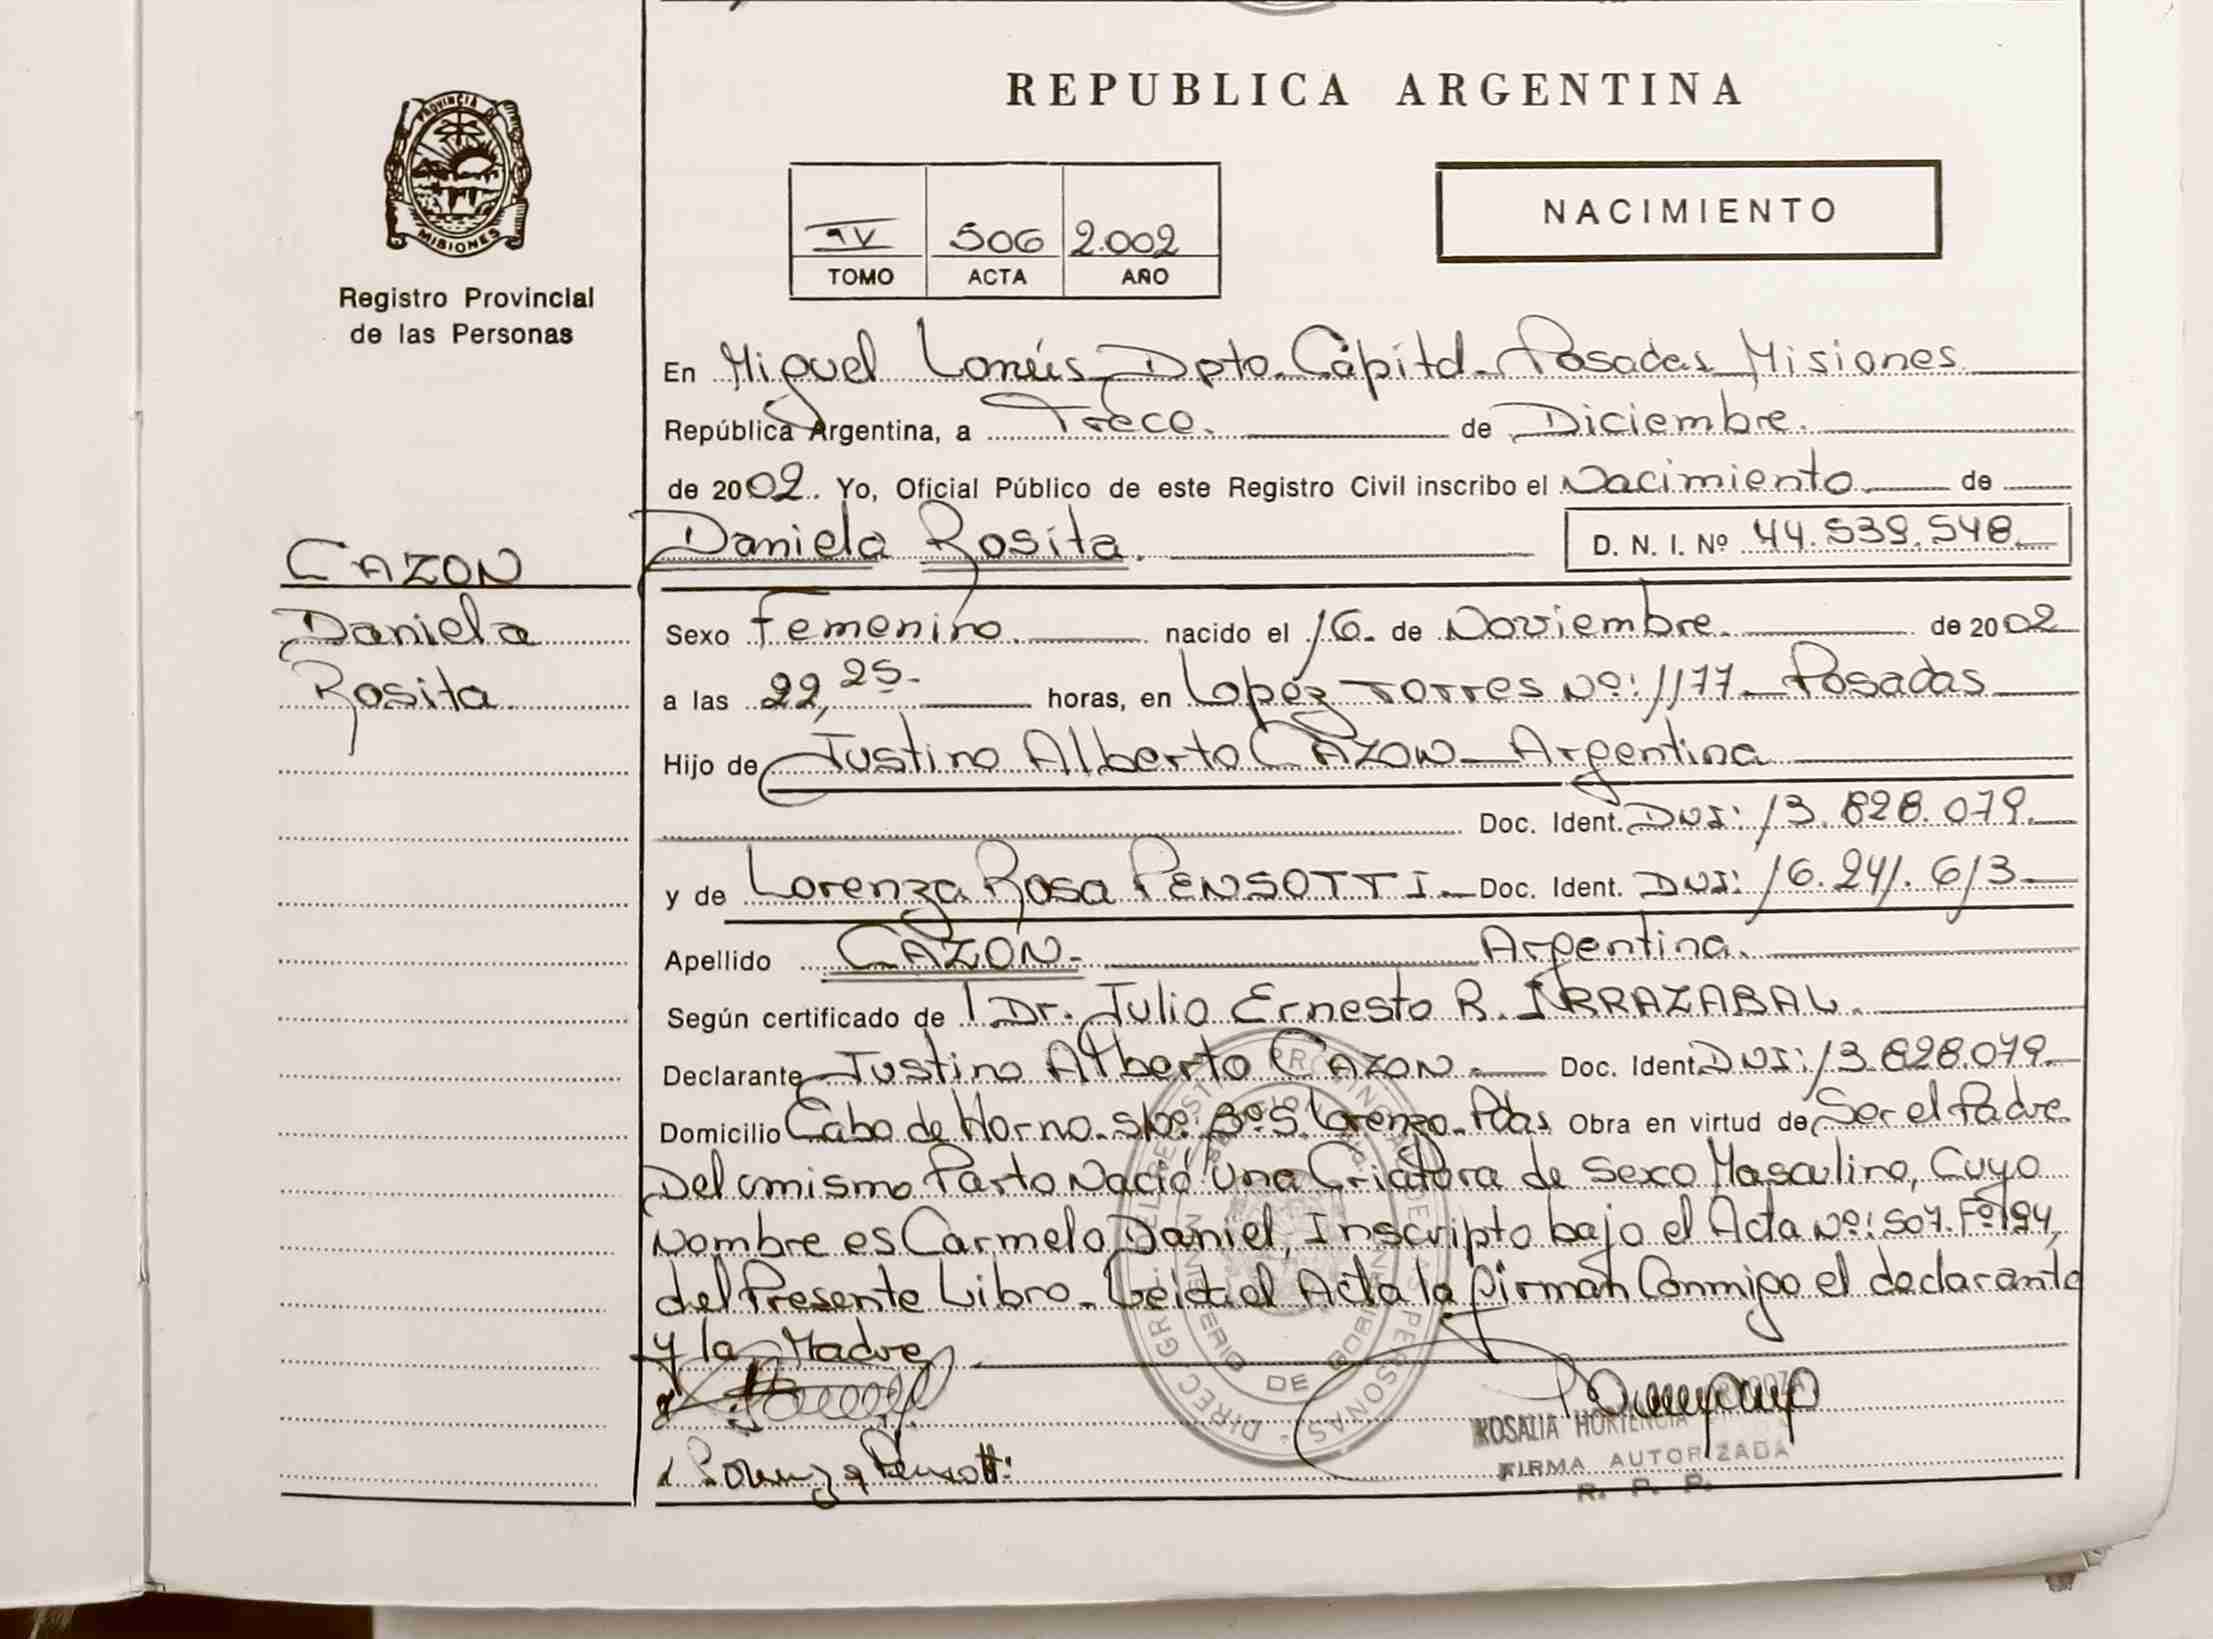 REPUBLICA ARGENTINA
PROVINCIA DE
MISIONES
Registro Provincial
de las Personas
IV 506 2.002
TOMO ACTA AÑO
NACIMIENTO
En Miguel Lanús Dpto. Cápital Posadas Misiones
República Argentina, a Trece. de Diciembre.
de 2002. Yo, Oficial Público de este Registro Civil inscribo el Nacimiento de
Daniela Rosita. D. N. I. Nº 44.539.548
CAZON
Daniela
Rosita
Sexo Femenino nacido el 16. de Noviembre. de 2002
a las 22,25- horas, en Lopéz Torres Nº: 1177 Posadas
Hijo de Justino Alberto CAZON Argentina
Doc. Ident. DNI: 13.828.079.
y de Lorenza Rosa PENSOTTI Doc. Ident. DNI: 16.241.613
Apellido CAZON- Argentina.
Según certificado de l Dr. Julio Ernesto R. IRRAZABAL.
Declarante Justino Alberto CAZON. Doc. Ident. DNI: 13.828.079
Domicilio Cabo de Horno. Bº S. Lorenzo. Pdas Obra en virtud de Ser el Padre
Del mismo Parto Nació una Criatura de Sexo Masculino, Cuyo
Nombre es Carmelo Daniel, Inscripto bajo el Acta Nº: 507. Fº 194,
del Presente Libro. Leida el Acta la firman Conmigo el declarante
y la Madre
Lorenza Pensotti
ROSALIA HORTENCIA
FIRMA AUTORIZADA
R. P. P.